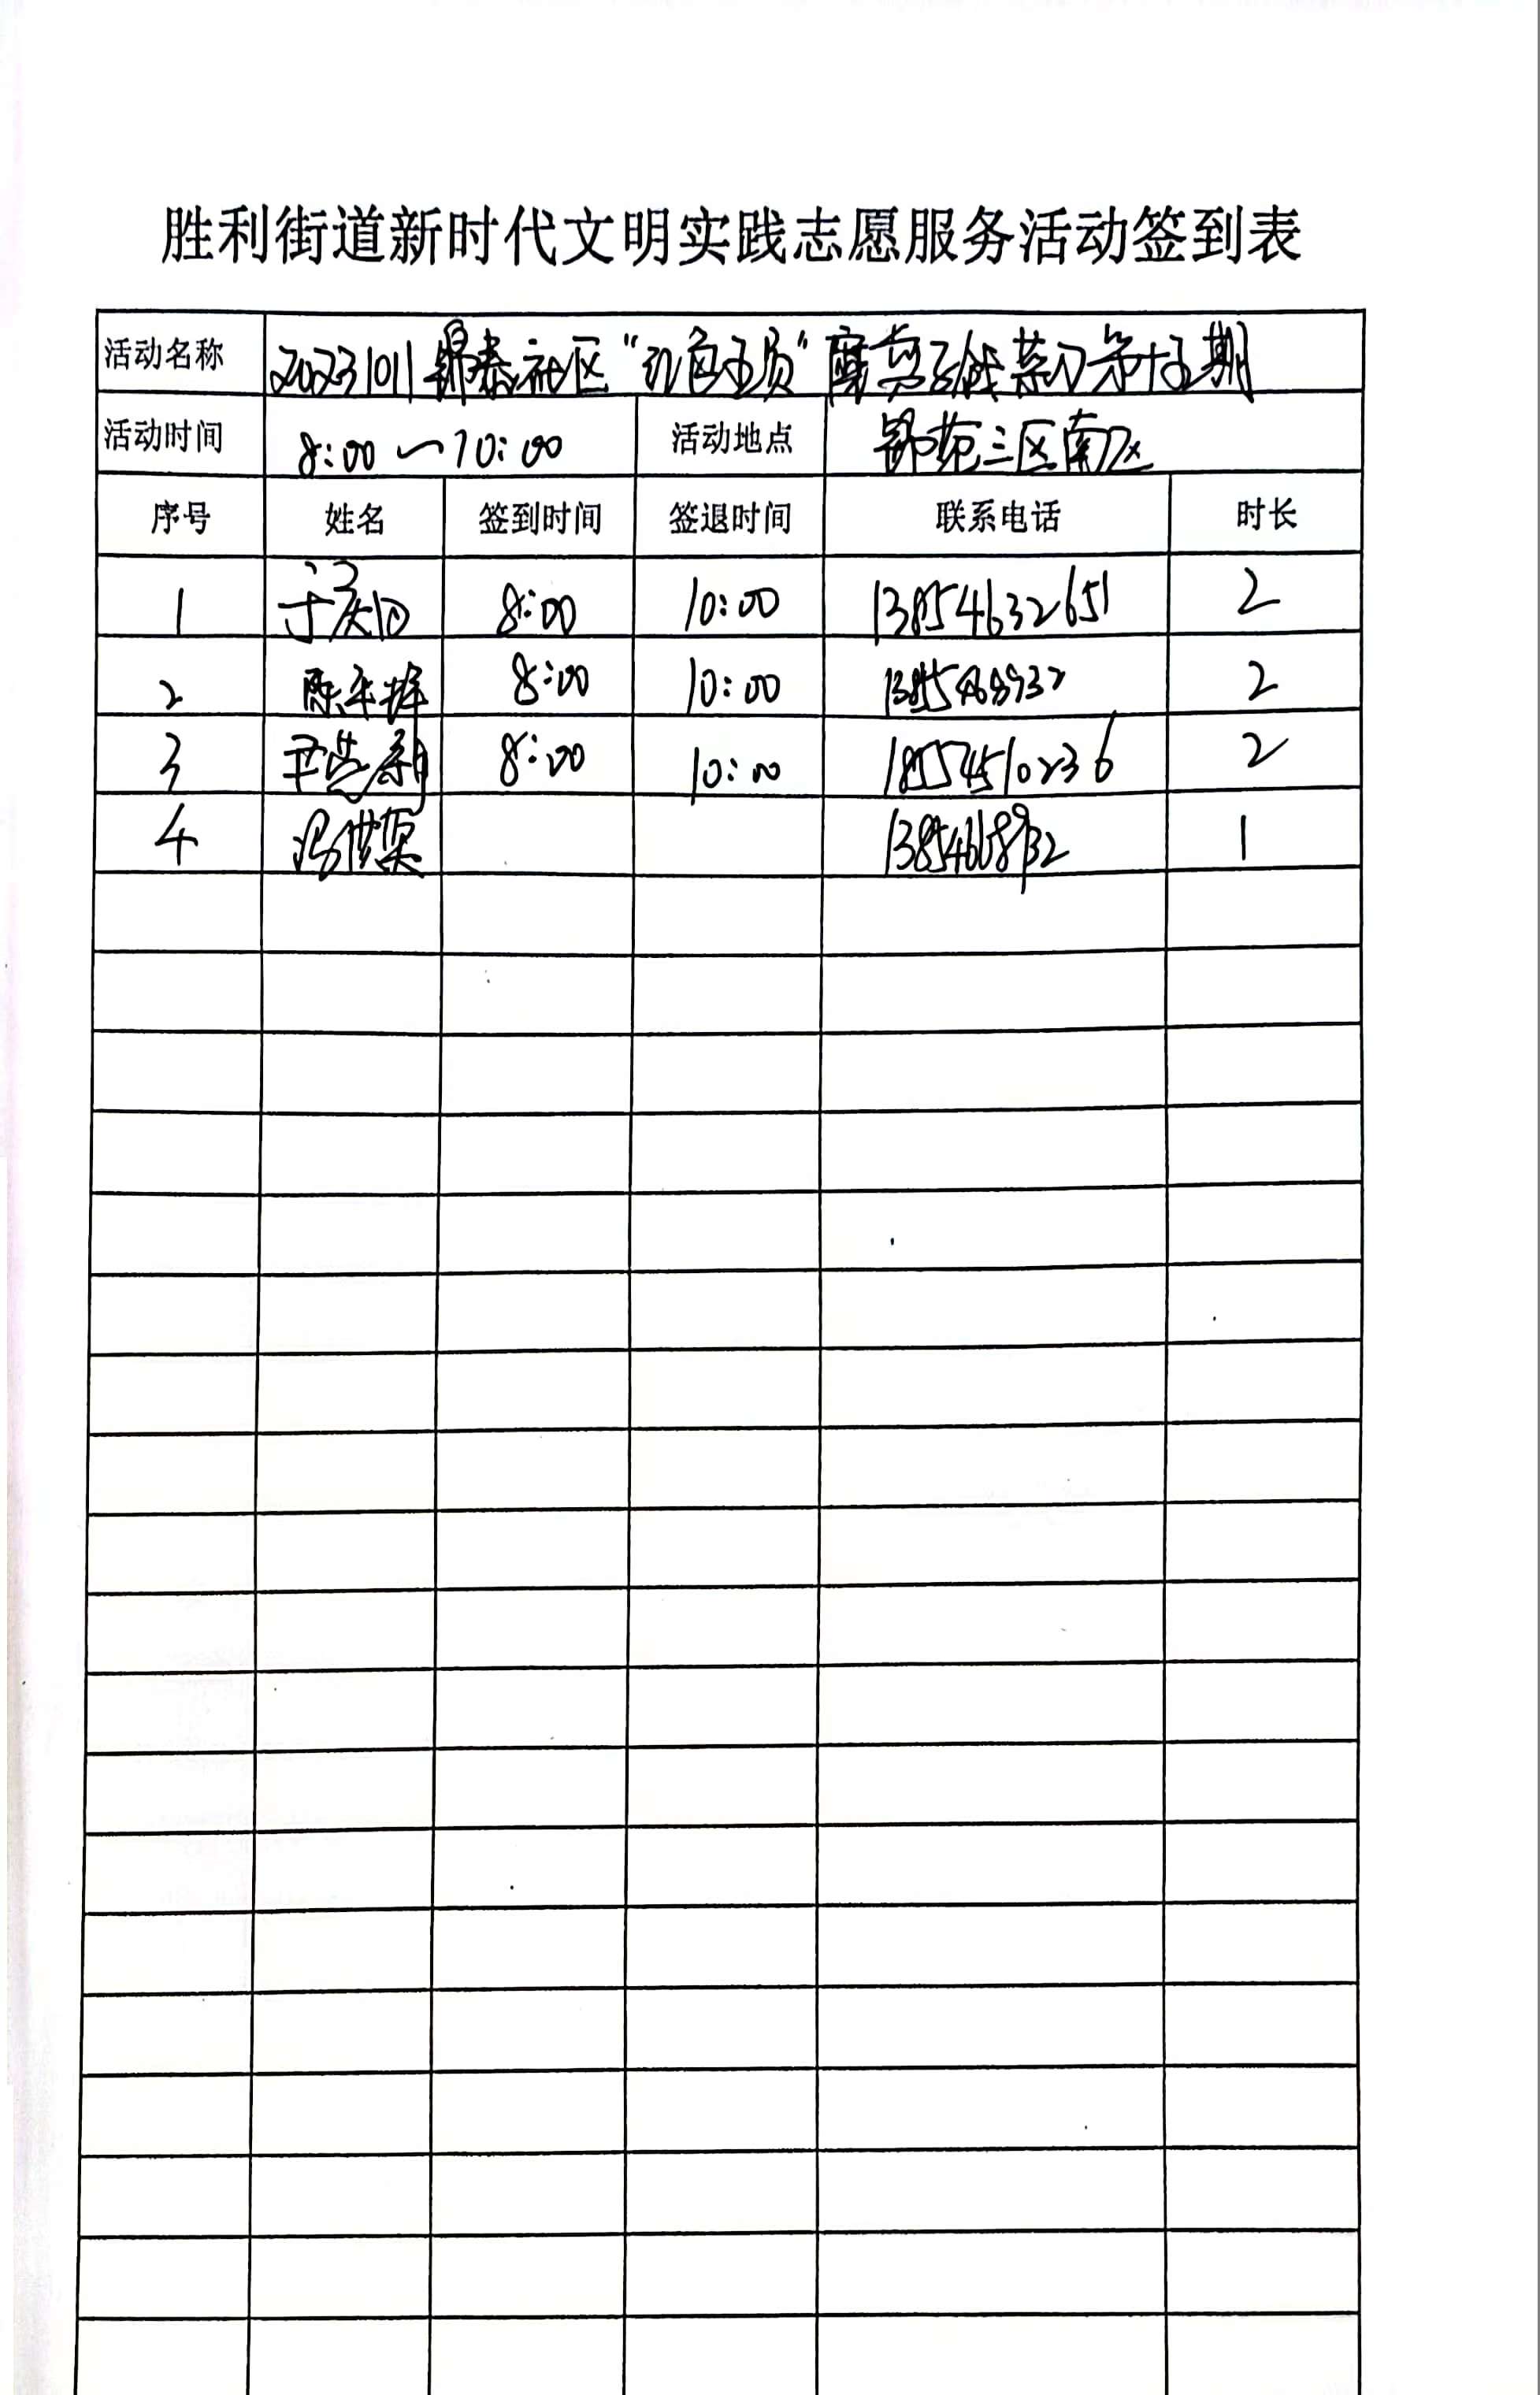 胜利街道新时代文明实践志愿服务活动签到表
活动名称 20231011 锦泰社区“红色 ” 磨剪子戗菜刀第十五期
活动时间 8:00～10:00 活动地点 锦苑三区南区
序号 姓名 签到时间 签退时间 联系电话 时长
1 于庆 8:00 10:00 13854632651 2
2 陈 8:00 10:00 2
3 8:00 10:00 2
4 冯 1